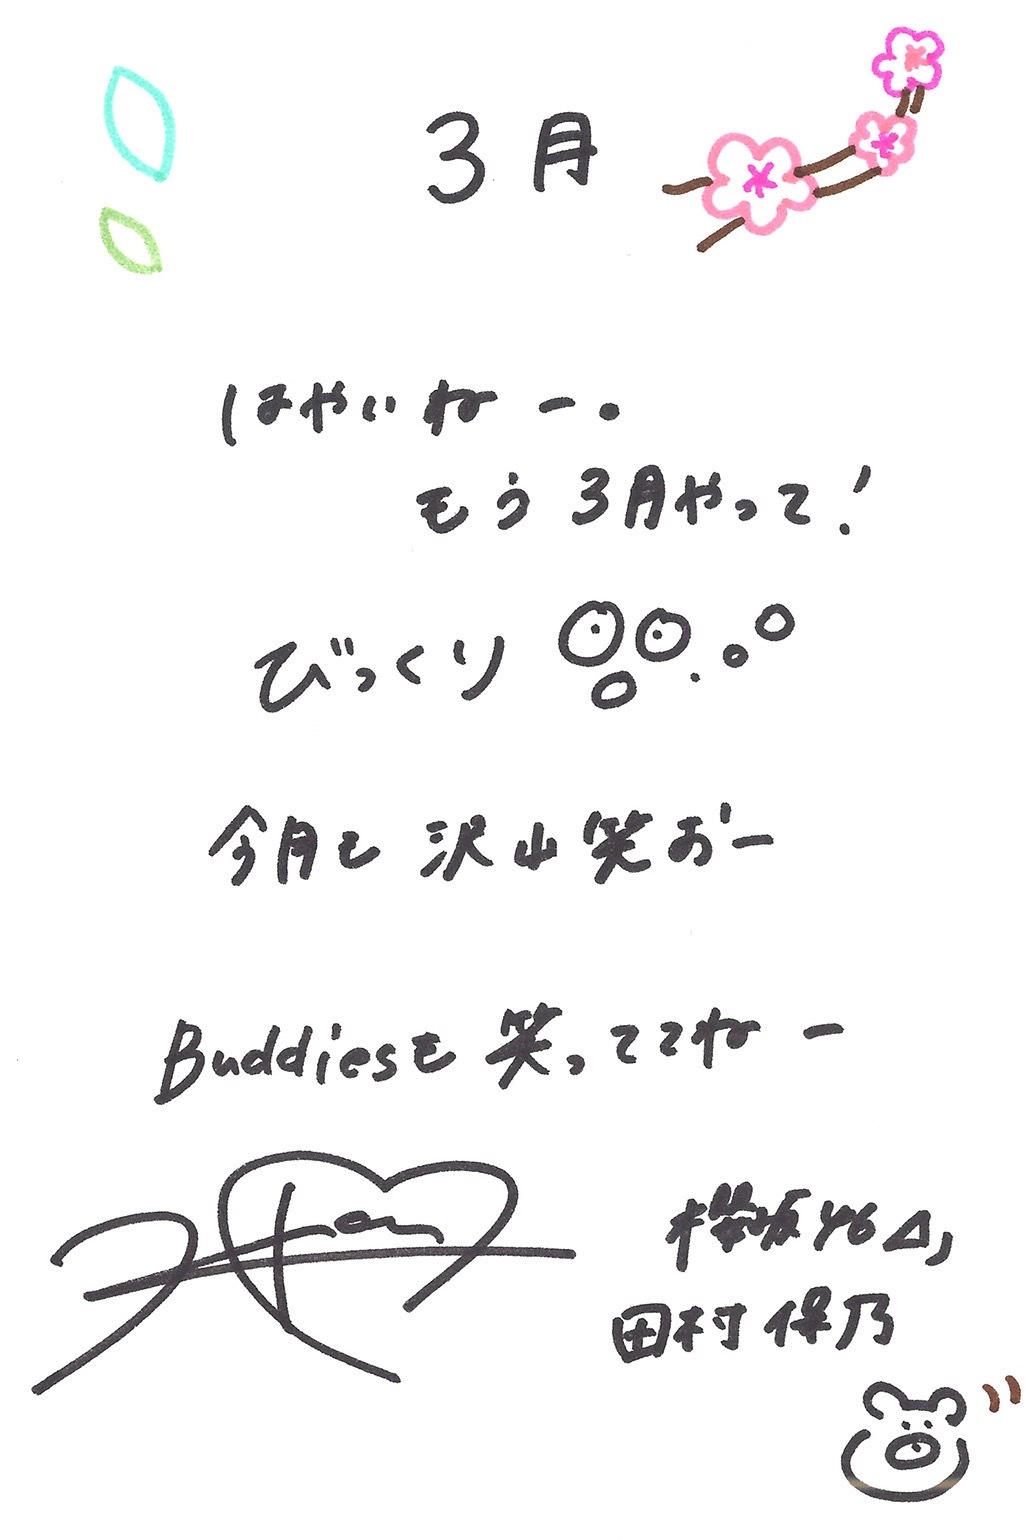 3月
はやいねー。
もう3月やって!
びっくり
今月も 沢山笑おー
Buddiesも 笑っててねー
欅坂46
田村保乃